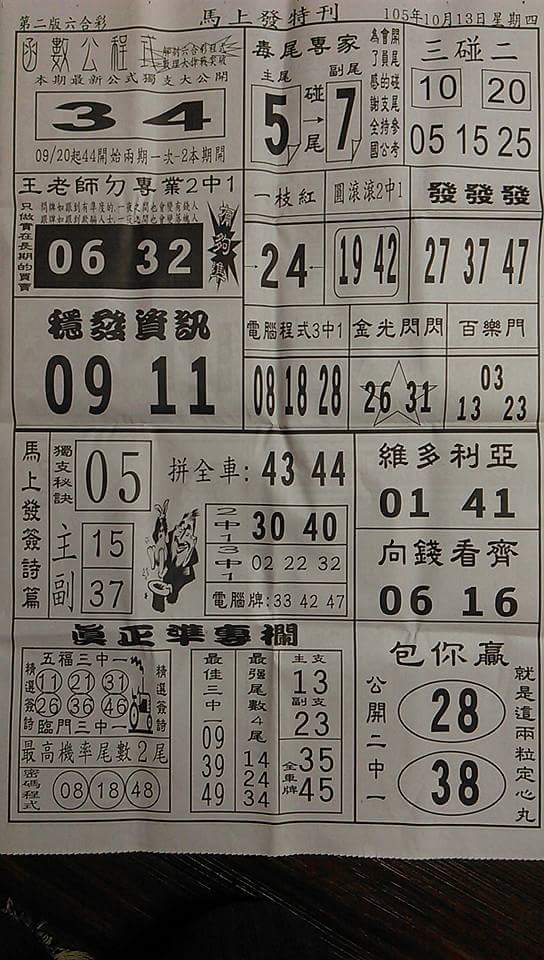 第二版六合彩
馬上發特刊
105年10月13日星期四
函數公程式
本期最新公式獨支大公開
34
09/20起44開始兩期一次-2本期開
毒尾專家
主尾
副尾
5
碰
→
尾
7
開尾碰尾參考
會員的支持
為了感謝全國公
三碰二
10 20
05 15 25
王老師ㄉ專業2中1
只做實在長期的買賣
06 32
一枝紅
24
圓滾滾2中1
19 42
發發發
27 37 47
穩發資訊
09 11
電腦程式3中1
08 18 28
金光閃閃
26 31
百樂門
03
13 23
馬上發簽詩篇
獨支秘訣
05
拼全車:43 44
主
15
副
37
2中1
30 40
3中1
02 22 32
電腦牌:33 42 47
維多利亞
01 41
向錢看齊
06 16
真正準專欄
五福三中一
精選簽詩
11 21 31
26 36 46
精選簽詩
臨門三中一
最高機率尾數2尾
密碼程式
08 18 48
最佳三中一
09
39
49
最強尾數4尾
14
24
34
主支
13
副支
23
全車牌
35
45
包你贏
公開二中一
28
38
就是這兩粒定心丸